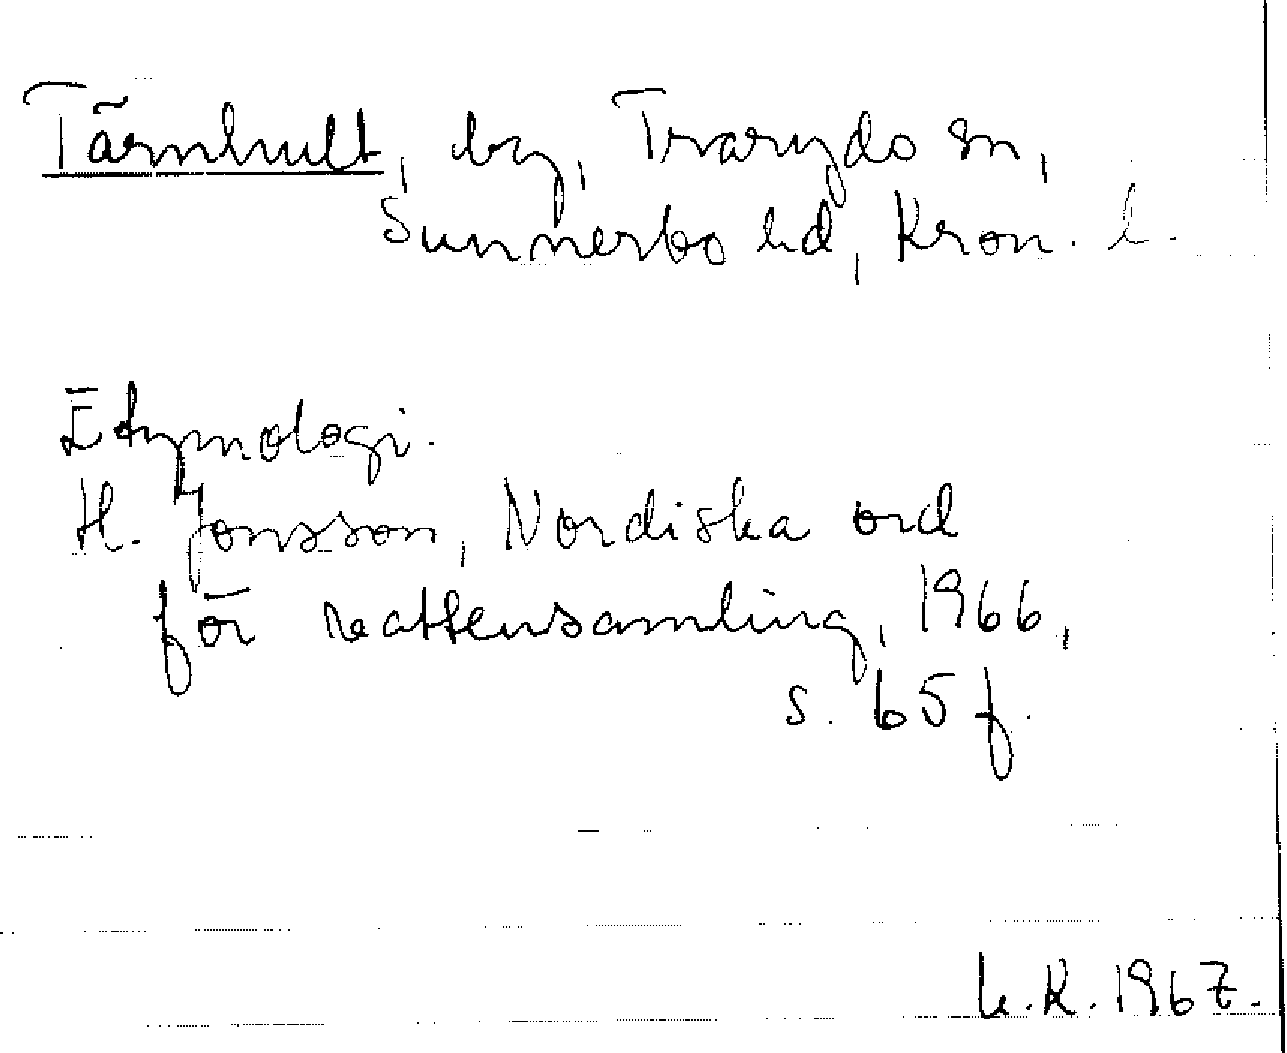 Tärnhult, by, Traryds sn,
Sunnerbo hd, Kron. l.
Etymologi.
H. Jonsson, Nordiska ord
för vattensamling, 1966,
s. 65 f.
L.K. 1967.